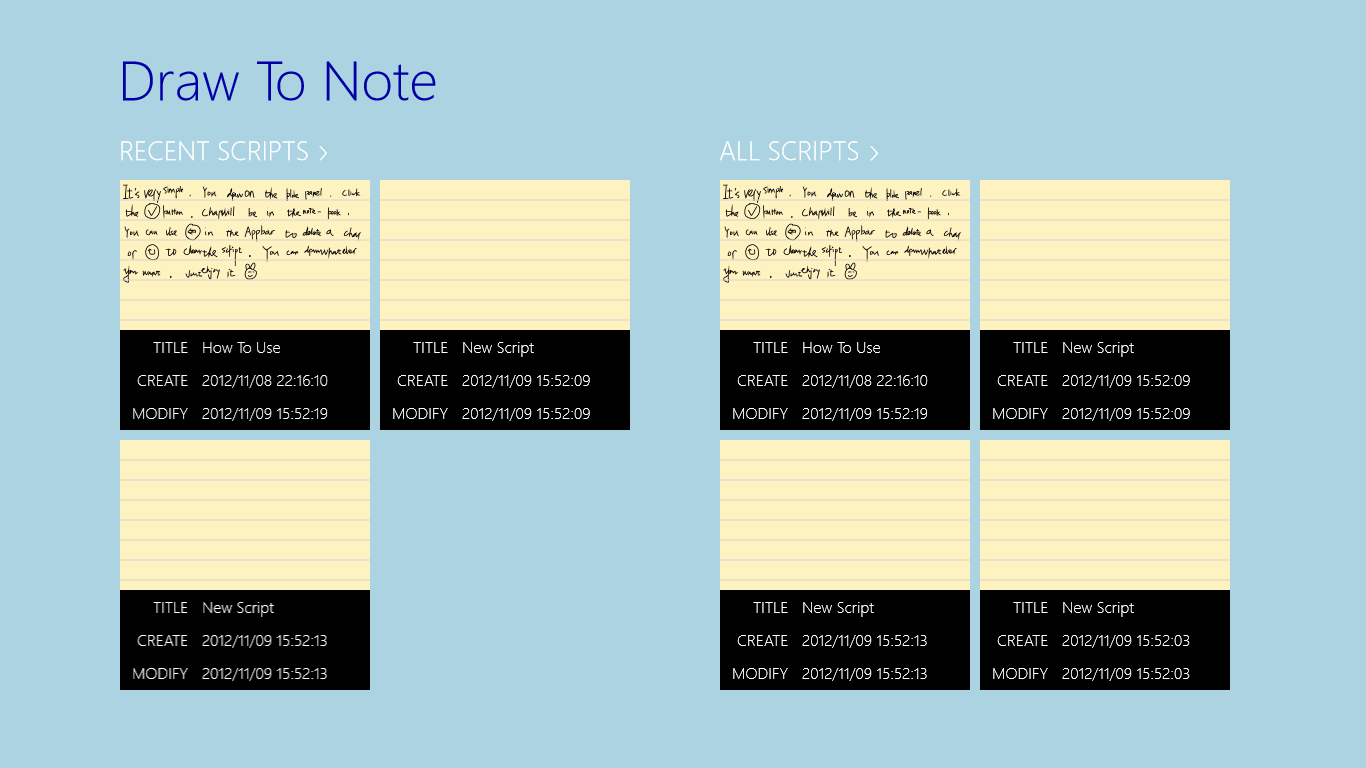 Draw To Note
RECENT SCRIPTS >
It's very simple. You draw on the blue panel. Click
the button. Char will be in the note-book.
You can use in the Appbar to delete a char
or to clear the script. You can draw whatever
you want. Just enjoy it
TITLE How To Use
CREATE 2012/11/08 22:16:10
MODIFY 2012/11/09 15:52:19
TITLE New Script
CREATE 2012/11/09 15:52:09
MODIFY 2012/11/09 15:52:09
TITLE New Script
CREATE 2012/11/09 15:52:13
MODIFY 2012/11/09 15:52:13
ALL SCRIPTS >
It's very simple. You draw on the blue panel. Click
the button. Char will be in the note-book.
You can use in the Appbar to delete a char
or to clear the script. You can draw whatever
you want. Just enjoy it
TITLE How To Use
CREATE 2012/11/08 22:16:10
MODIFY 2012/11/09 15:52:19
TITLE New Script
CREATE 2012/11/09 15:52:09
MODIFY 2012/11/09 15:52:09
TITLE New Script
CREATE 2012/11/09 15:52:13
MODIFY 2012/11/09 15:52:13
TITLE New Script
CREATE 2012/11/09 15:52:03
MODIFY 2012/11/09 15:52:03